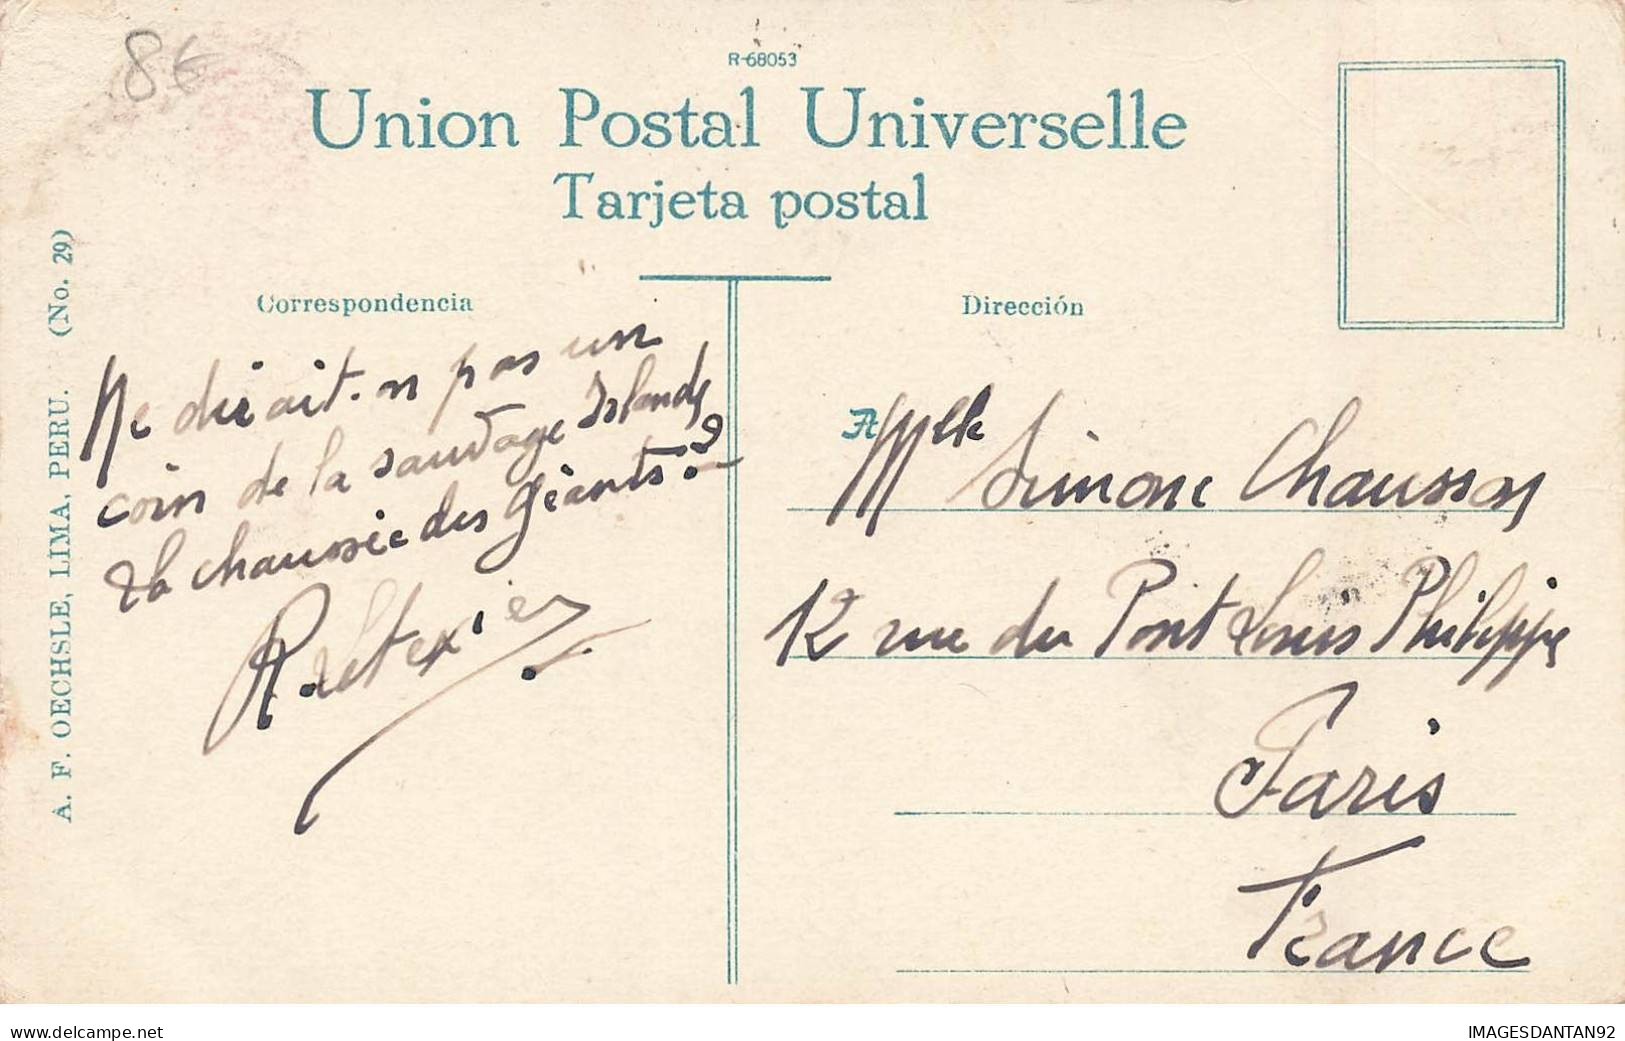 8€
R-68053
Union Postal Universelle
Tarjeta postal
Correspondencia
Dirección
A. F. OECHSLE, LIMA, PERU. (No. 29)
Ne dirait-on pas un
coin de la sauvage Islande
la chaussée des géants?
A Mlle Simone Chausson
12 rue du Pont Louis Philippe
Paris
France
www.delcampe.net
IMAGESDANTAN92